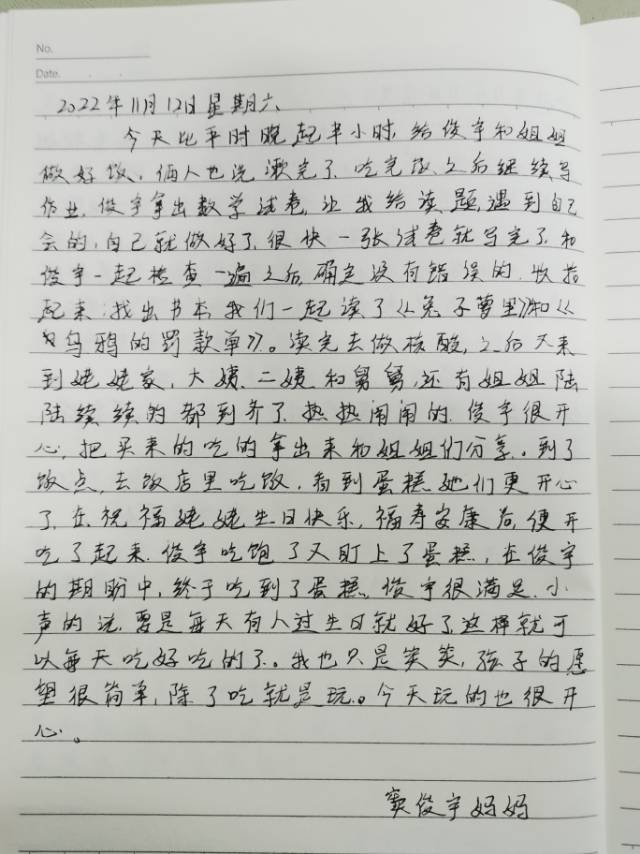 No.
Date.
2022年11月12日星期六
今天比平时晚起半小时,给俊宇和姐姐
做好饭,俩人也洗漱完了,吃完饭之后继续写
作业,俊宇拿出数学试卷,让我给读题,遇到自己
会的,自己就做好了,很快一张试卷就写完了,和
俊宇一起检查一遍之后,确定没有错误的,收拾
起来,找出书本,我们一起读了《兔子萝里》和《
乌鸦的罚款单》。读完去做核酸,之后又来
到姥姥家,大姨、二姨和舅舅,还有姐姐陆
陆续续的都到齐了,热热闹闹的,俊宇很开
心,把买来的吃的拿出来和姐姐们分享。到了
饭点,去饭店里吃饭,看到蛋糕她们更开心
了,在祝福姥姥生日快乐,福寿安康后,便开
吃了起来,俊宇吃饱了又盯上了蛋糕,在俊宇
的期盼中,终于吃到了蛋糕。俊宇很满足,小
声的说,要是每天有人过生日就好了,这样就可
以每天吃好吃的了。我也只是笑笑,孩子的愿
望很简单,除了吃就是玩。今天玩的也很开
心。
窦俊宇妈妈